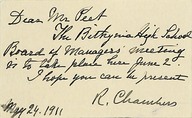 Dear Mr Peet
The Bithynia High School
Board of Managers' meeting
is to take place here June 2.
I hope you can be present
R. Chambers
May 24. 1911